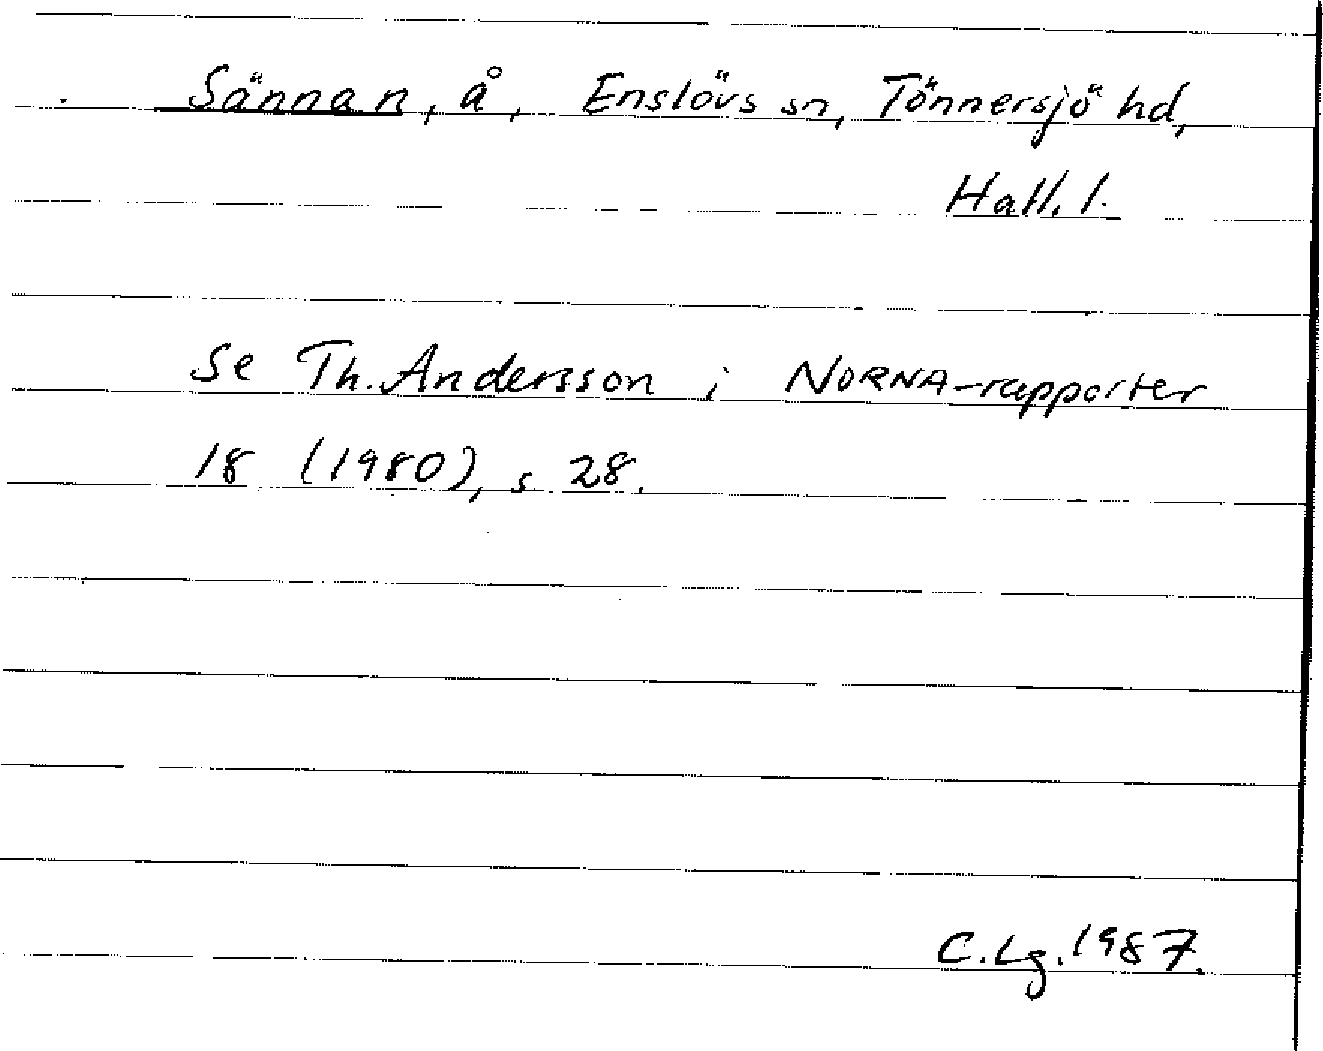 Sännan, å, Enslövs sn, Tönnersjö hd,
Hall. l.
Se Th. Andersson i NORNA-rapporter
18 (1980), s 28.
C. Lg. 1987.